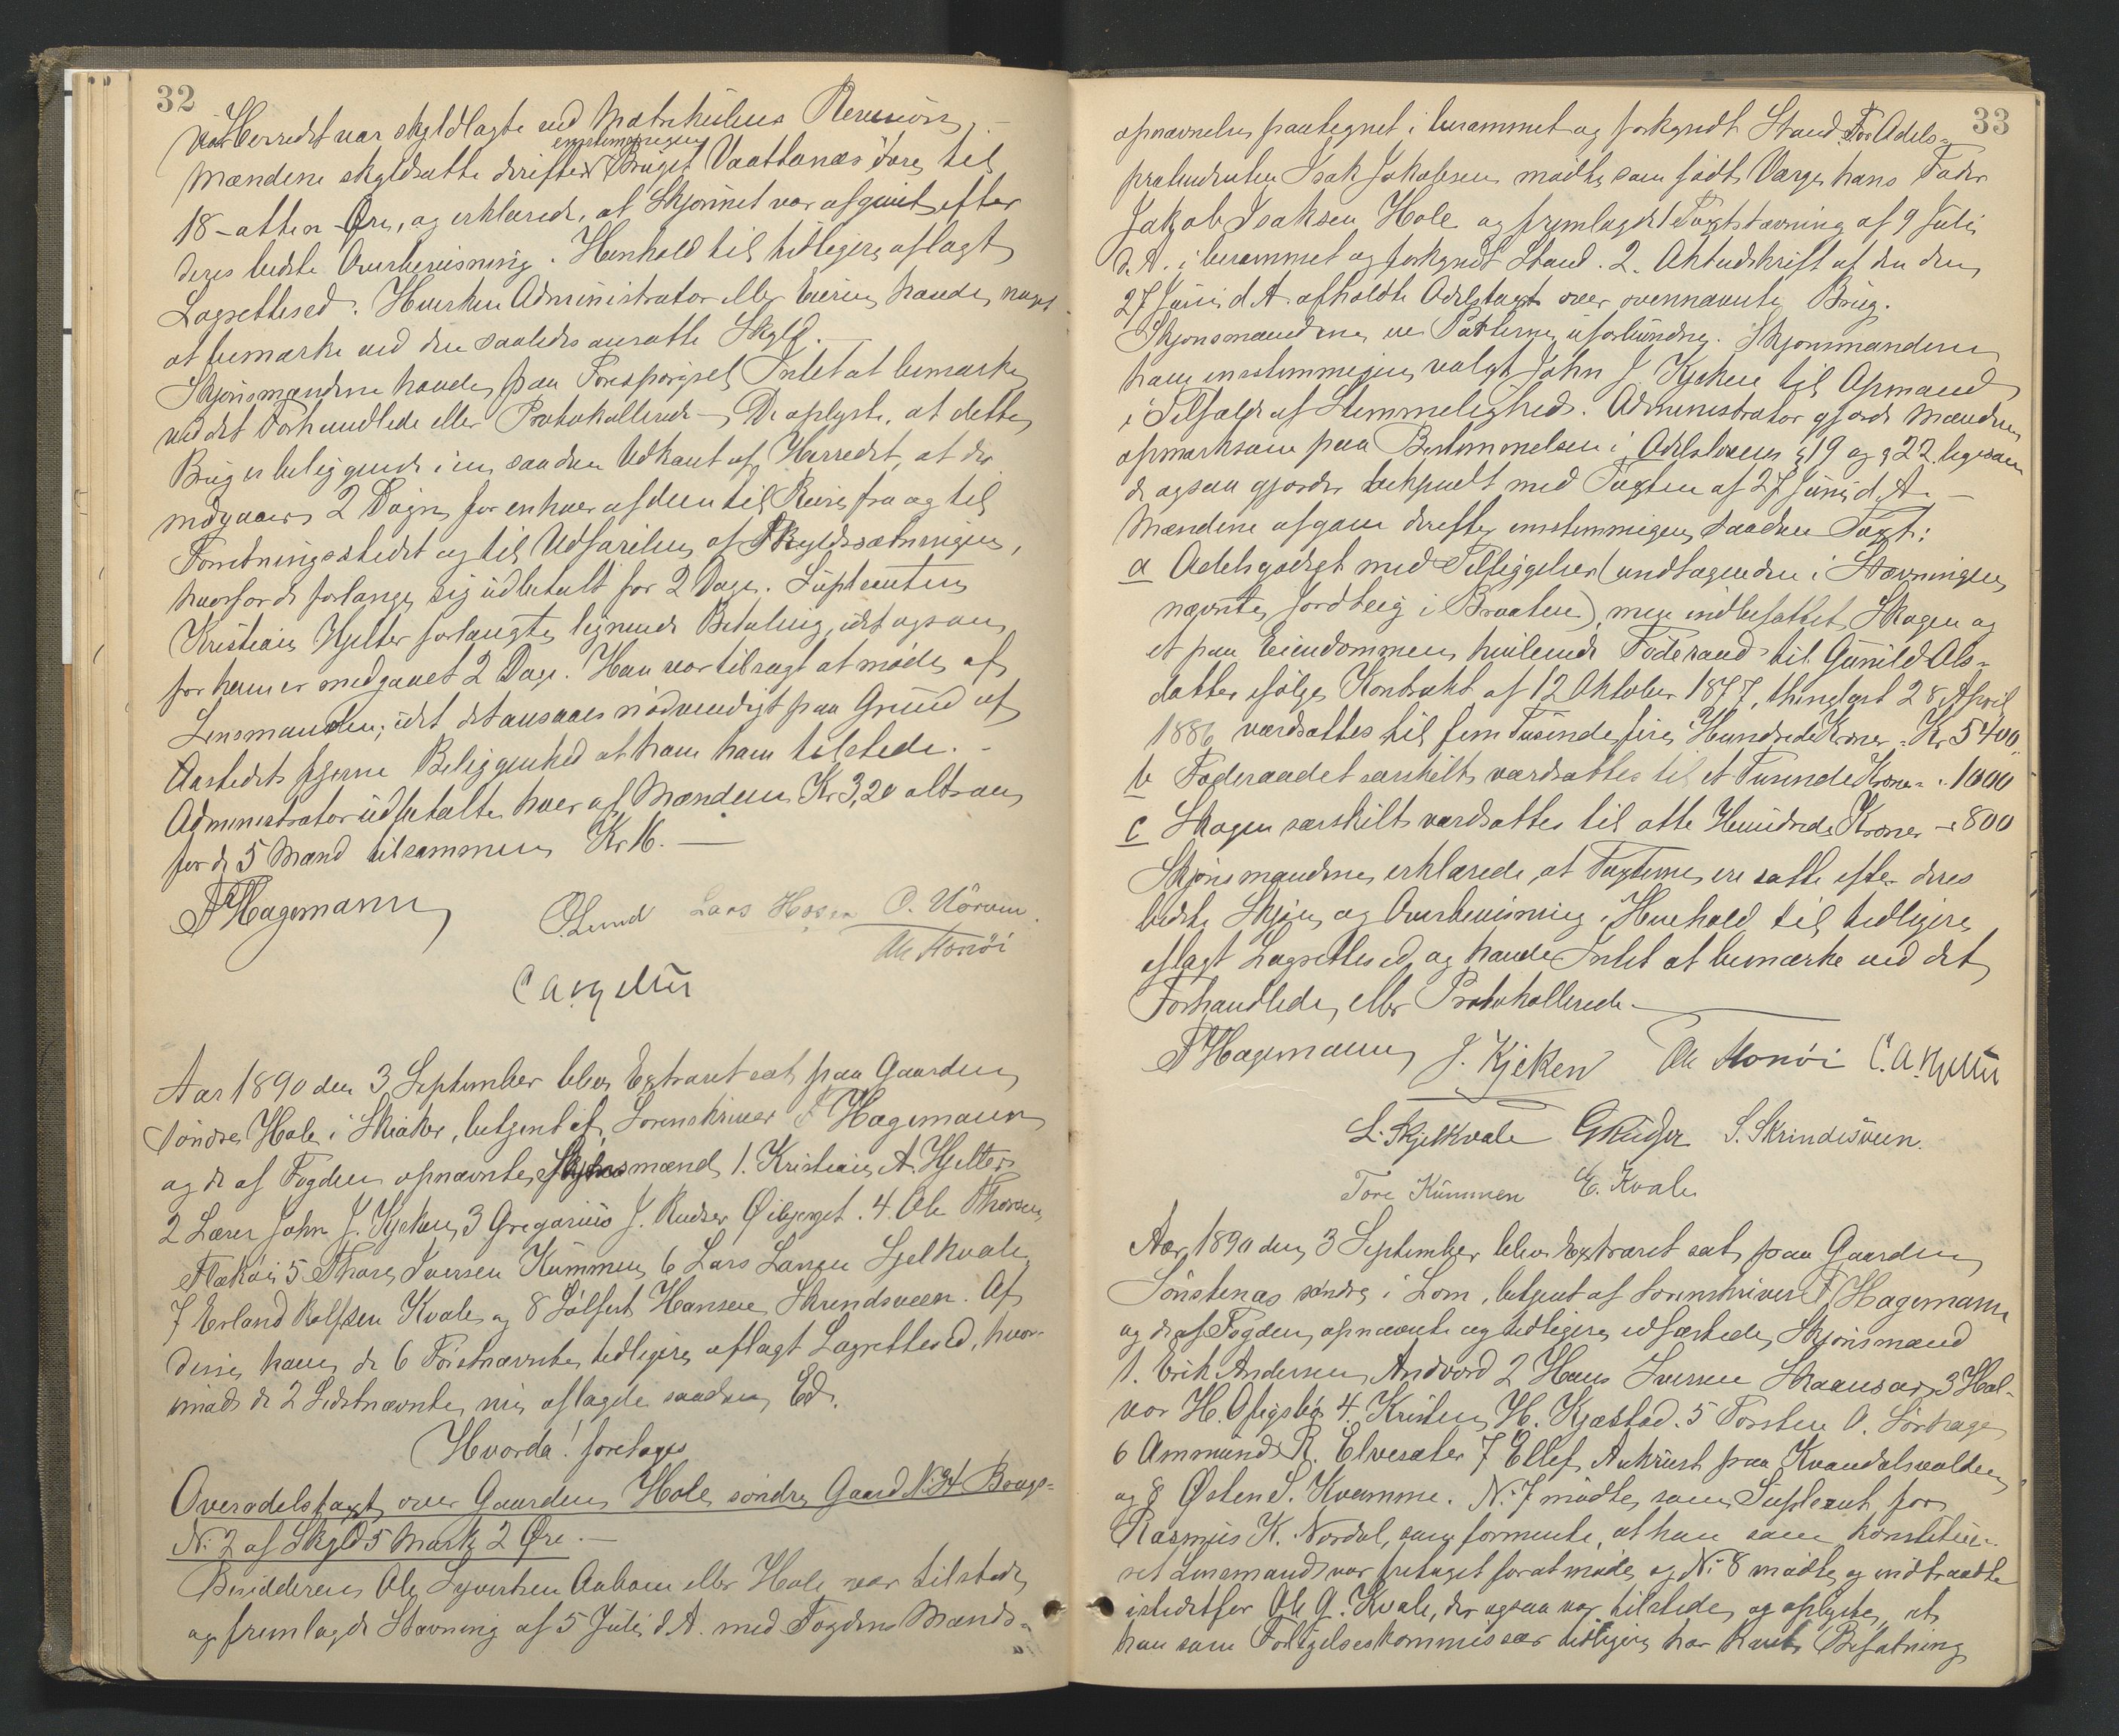 32
Herredet var skyldlagte ved Matrikulens Revision. –
enstemmigen
Mændene skyldsatte derefter Bruget Vaattanæs øvre til
18 – atten – Øre, og erklærede, at Skjønnet var afgivet efter
deres bedste Overbevisning i Henhold til tidligere aflagt
Lagrettesed. Hverken Administrator eller Eieren havde noget
at bemærke ved den saaledes ansatte Skyld. –
Skjønsmændene havde paa Forespørgsel Intet at bemærke
ved det Forhandlede eller Protokollerede – De oplyste, at dette
Brug er beliggende i en saadan Udkant af Herredet, at der
medgaar 2 Døgn for enhver af dem til Reise fra og til
Forretningsstedet og til Udførelsen af Skyldsætningen,
hvorfor de forlange sig udbetalt for 2 Dage. Suplenten
Kristian Hjelter forlangte lignende Betaling, idet ogsaa
for ham er medgaaet 2 Dage. Han var tilsagt at møde af
Lensmanden, idet det ansaaes nødvendigt paa Grund af
Aastedets fjerne Beliggenhed at have ham tilstede. –
Administrator udbetalte hver af Mændene Kr 3,20 altsaa
for de 5 Mænd tilsammen Kr 16. –
F Hagemann O Lund Lars Hosen O. Uörven
Ole Monöi
C A Hjelter
Aar 1890 den 3 September blev Extraret sat paa Gaarden
söndre Hole i Skiaker, betjent af Sorenskriver F Hagemann
og de af Fogden opnævnte Skjønsmænd 1. Kristian A. Hjelter
2 Lærer John J. Kjeken 3 Gregarius J. Rudser Øibjerget. 4. Ole Thoresen
5 Thore Iversen Kummen 6 Lars Larsen Sjelkvale
7 Erland Rolfsen Kvale og 8 Sølfest Hansen Skrendsveen. Af
disse have de 6 Førstnævnte tidligere aflagt Lagrettesed, hvor-
imod de 2 Sidstnævnte nu aflagde saadan Ed.
Hvorda! foretages
Overodelstaxt over Gaarden Hole söndre Gaard No 34 Brugs-
No 2 af Skyld 5 Mark 2 Øre. –
Besidderen Ole Syvertsen Aaboen eller Hole var tilstede
og fremlagde Stævning af 5 Juli d. A. med Fogdens Mands-
33
opnævnelse paategnet i berammet og forkyndt Stand. For Odels-
prætendenten Isak Jakobsen mødte som født Værge hans Fader
Jakob Isaksen Hole og fremlagde 1 Taxtstævning af 9 Juli
d. A. i berammet og forkyndt Stand. 2. Aktudskrift af den den
27 Juni d A. afholdte Odelstaxt over ovennævnte Brug.
Skjønsmændene ere Parterne uforbundne. Skjønsmændene
have enstemmigen valgt John J. Kjeken til Opmand
i Tilfælde af Stemmelighed. Administrator gjorde Mændene
opmærksom paa Bestemmelsen i Odelslovens § 19 og § 22 ligesom
de ogsaa gjordes bekjendt med Taxten af 27 Juni d. A. –
Mændene afgave derefter enstemmigen saadan Taxt:
a Odelsgodset med Tilliggelser (undtagen den i Stævningen
nævnte Jordteig i Braaten), men indbefattet Skogen og
et paa Eiendommen hvilende Føderaad til Gunild Ols-
datter ifølge Kontrakt af 12 Oktober 1877, thinglæst 28 April
1886 værdsattes til fem Tusinde fire Hundrede Kroner - Kr 5400,
b Føderaadet særskilt værdsattes til et Tusinde Kroner - 1000
c Skogen særskilt værdsattes til otte Hundrede Kroner - 800
Skjønsmændene erklærede, at Taxterne ere satte efter deres
bedste Skjøn og Overbevisning i Henhold til tidligere
aflagt Lagrettesed og havde Intet at bemærke ved det
Forhandlede eller Protokollerede –
F Hagemann J. Kjeken Ole Monöi C. A. Hjelter
L. Skjelkvale G Rudser S. Skrindsveen.
Tore Kummen E. Kvale
Aar 1890 den 3 September blev Extraret sat paa Gaarden
Sönstenæs söndre i Lom, betjent af Sorenskriver F Hagemann
og de af Fogden opnævnte og tidligere edfæstede Skjønsmænd
1. Erik Andersen Andvord 2 Hans Iversen Skaansar 3 Hal-
vor H. Ofigsbø 4. Kristen H. Kjæstad. 5 Torsten O. Sörhage
6 Ammund R. Elvesæter 7 Ellef Aukrust paa Kvandalsvolden
og 8 Østen S. Kvamme. No 7 mødte som Supleant for
Rasmus K. Nordal, som formente, at han som konstitue-
ret Lensmand var fritaget for at møde og No 8 mødte og indtraadte
istedetfor Ole G. Kvale, der ogsaa var tilstede og oplyste, at
han som Forligelseskommissær tidligere har havt Befatning